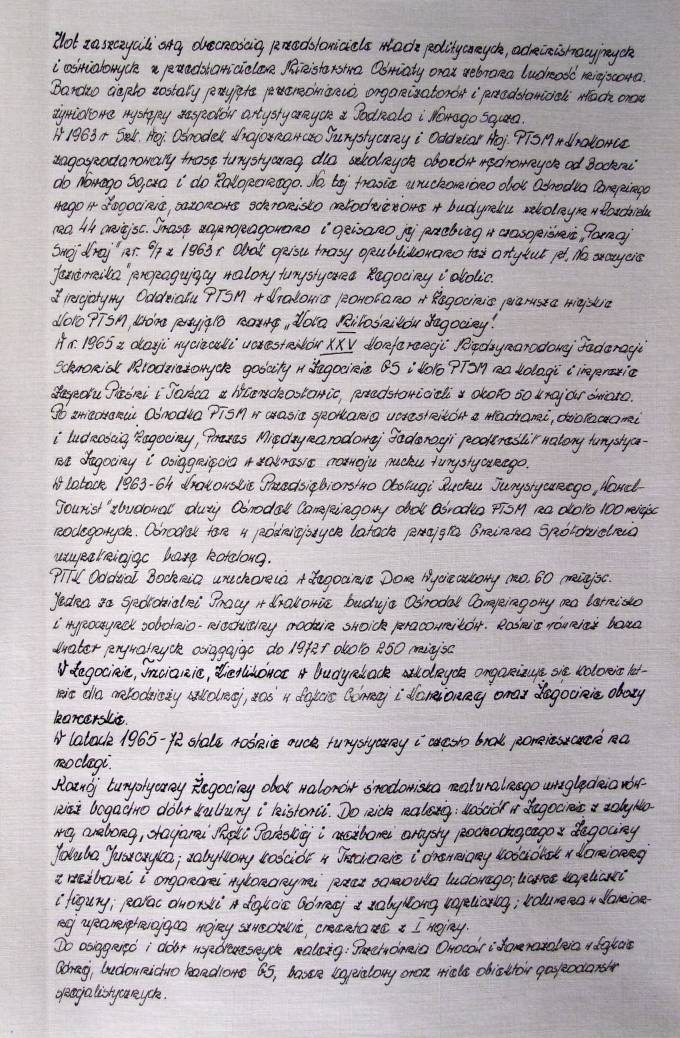 Zlot zaszczycili swą obecnością przedstawiciele władz politycznych, administracyjnych
i oświatowych z przedstawicielem Ministerstwa Oświaty oraz zebrana ludność miejscowa.
Bardzo ciepło zostały przyjęte przemówienia organizatorów i przedstawicieli władz oraz
żywiołowe występy zespołów artystycznych z Podhala i Nowego Sącza.
W 1963 r Szk. Woj. Ośrodek Krajoznawczo Turystyczny i Oddział Woj. PTSM w Krakowie
zagospodarowały trasę turystyczną dla szkolnych obozów wędrownych od Bochni
do Nowego Sącza i do Zakopanego. Na tej trasie uruchomiono obok Ośrodka Campingo
wego w Żegocinie, sezonowe schronisko młodzieżowe w budynku szkolnym w Rozdzielu
na 44 miejsc. Trasę zapropagowano i opisano jej przebieg w czasopiśmie „Poznaj
Swój Kraj" nr. 6/7 z 1963 r Obok opisu trasy opublikowano też artykuł pt. Na szczycie
Jeziernika" propagujący walory turystyczne Żegociny i okolic.
Z inicjatywy Oddziału PTSM w Krakowie powołano w Żegocinie pierwsze wiejskie
Koło PTSM, które przyjęło nazwę „Koła Miłośników Żegociny".
W r. 1965 z okazji wycieczki uczestników XXV Konferencji Międzynarodowej Federacji
Schronisk Młodzieżowych gościły w Żegocinie GS i Koło PTSM na kolacji i imprezie
Zespołu Pieśni i Tańca z Wierzchosławic, przedstawicieli z około 50 krajów świata.
Po zwiedzeniu Ośrodka PTSM w czasie spotkania uczestników z władzami, działaczami
i ludnością Żegociny, Prezes Międzynarodowej Federacji podkreślił walory turystycz-
ne Żegociny i osiągnięcia w zakresie rozwoju ruchu turystycznego.
W latach 1963-64 Krakowskie Przedsiębiorstwo Obsługi Ruchu Turystycznego „Wawel-
Tourist" zbudował duży Ośrodek Campingowy obok Ośrodka PTSM na około 100 miejsc
noclegowych. Ośrodek ten w późniejszych latach przejęła Gminna Spółdzielnia
uzupełniając bazę hotelową.
PTTK Oddział Bochnia uruchamia w Żegocinie Dom Wycieczkowy na. 60 miejsc.
Jedna ze Spółdzielni Pracy w Krakowie buduje Ośrodek Campingowy na letnisko
i wypoczynek sobotnio-niedzielny rodzin swoich pracowników. Rośnie również baza
kwater prywatnych osiągając do 1972 r około 250 miejsc
W Żegocinie, Trzcianie, Bełdnie w budynkach szkolnych organizuje się kolonie let-
nie dla młodzieży szkolnej, zaś w Łąkcie Górnej i Kamionnej oraz Żegocinie obozy
harcerskie.
W latach 1965-72 stale rośnie ruch turystyczny i często brak pomieszczeń na
noclegi.
Rozwój turystyczny Żegociny obok walorów środowiska naturalnego uwzględnia rów-
nież bogactwo dóbr kultury i historii. Do nich należą: kościół w Żegocinie z zabytko-
wą amboną, stacjami Męki Pańskiej i rzeźbami artysty pochodzącego z Żegociny
Jakuba Juszczyka; zabytkowy kościół w Trzcianie i drewniany kościółek w Kamionnej
z rzeźbami i organami wykonanymi przez samouka ludowego; liczne kapliczki
i figury; pałac dworski w Łąkcie Górnej z zabytkową kapliczką; kolumna w Kamion-
nej upamiętniająca wojny szwedzkie, cmentarze z I wojny.
Do osiągnięć i dóbr współczesnych należą: Przetwórnia Owoców i Zamrażalnia w Łąkcie
Górnej, budownictwo handlowe GS, basen kąpielowy oraz wiele obiektów gospodarstw
specjalistycznych.